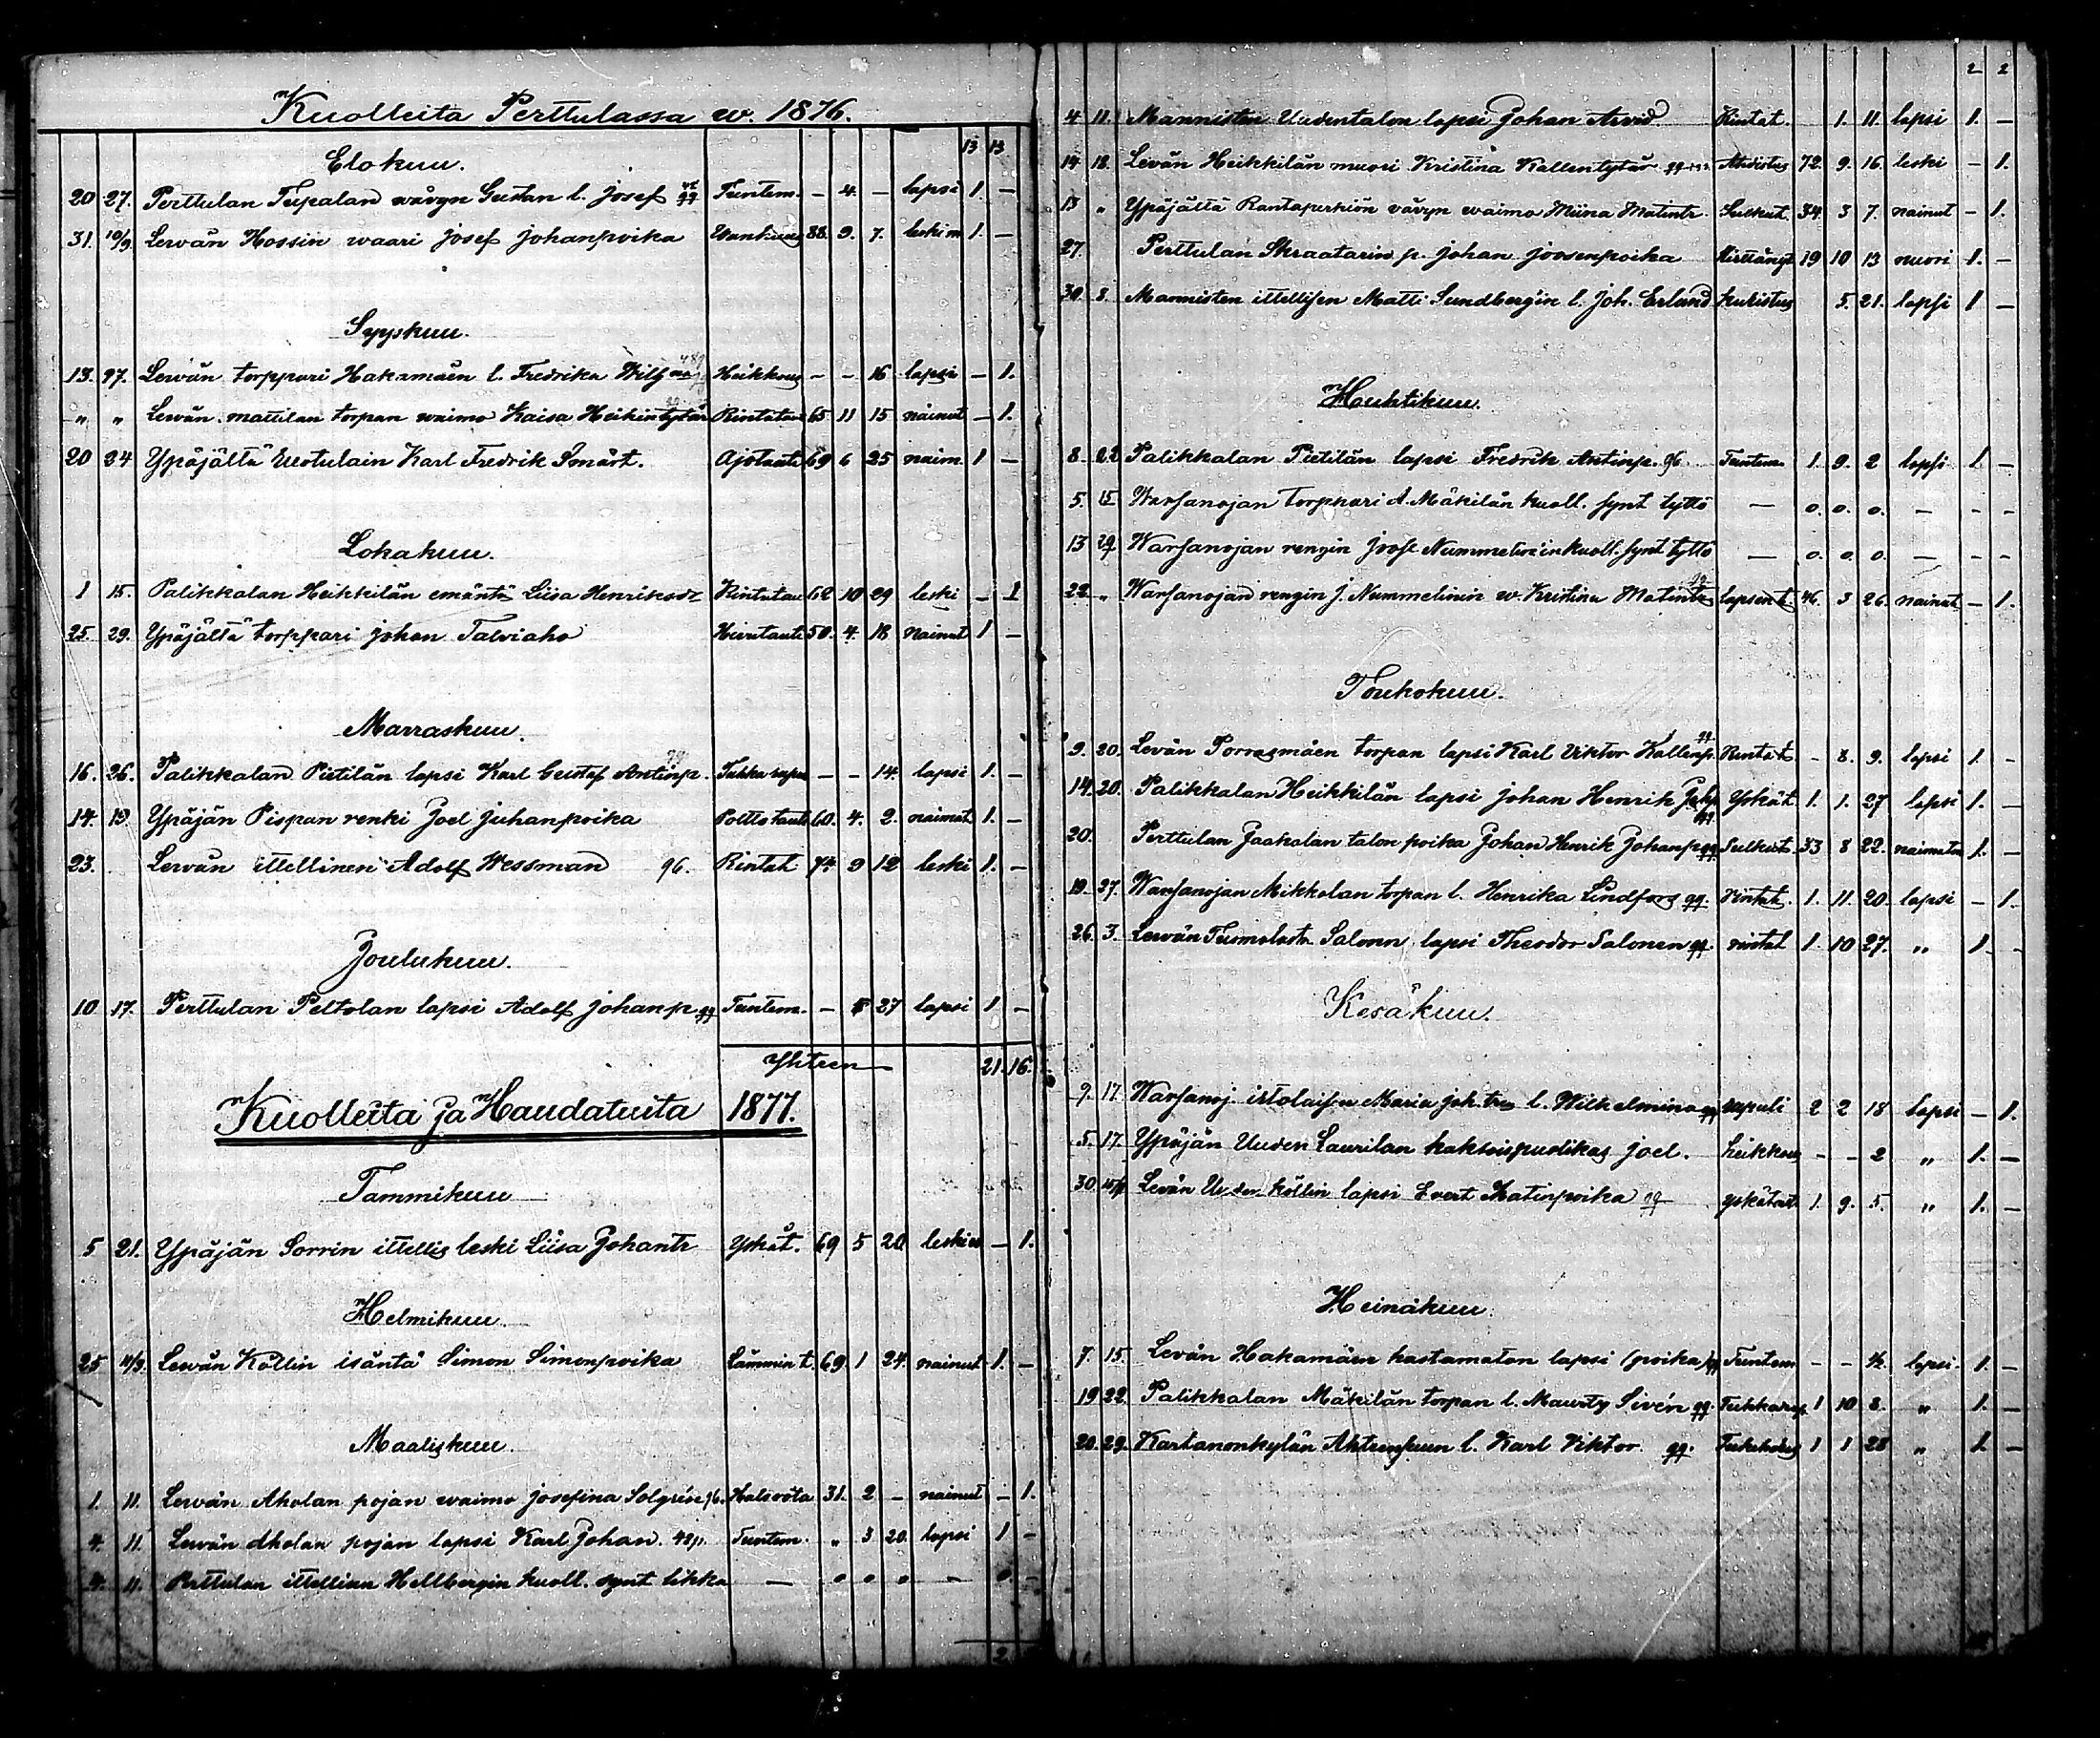 Kuolleita Perttulassa w. 1876.
13 13
Elokuu.
20 27. Perttulan Teepalan wävyn Gustan l. Josef Tuntem. – 4. – lapsi 1. –
31. 10/9. Lewän Hossin waari Josef Johanpoika Wanhuus 88. 9. 7. leskim 1. –
Syyskuu.
13. 27. Lewän torppari Hakamäen l. Fredrika Heikkous – – 16 lapsi – 1.
„ „ Lewän Mattilan torpan waimo Kaisa Heikintytär Rintatau 65 11 15 nainut – 1.
20 24 Ypäjältä Uotulain Karl Fredrik Smårt. Ajotauti 69 6 25 naim. 1 –
Lokakuu.
1 15. Palikkalan Heikkilän emäntä Liisa Henriksdr Rintatau 62 10 29 leski – 1
25. 29. Ypäjältä torppari Johan Talviaho 50. 4. 18 Nainut 1 –
Marraskuu.
16. 26. Palikkalan Pietilän lapsi Karl Gustaf Antinp. – – 14. lapsi 1. –
14. 19 Ypäjän Pispan renki Joel Juhanpoika Polttotauti 60. 4. 2. naimat. 1. –
23. Lewän ittellinen Adolf Wessman 96. Rintat. 74 9 12 leski 1. –
Joulukuu.
10 17. Perttulan Peltolan lapsi Adolf Johanp. Tuntem. – 5 27 lapsi 1 –
Yhteen 21. 16.
Kuolleita ja Haudatuita 1877.
Tammikuu
5 21. Ypäjän Sorrin ittellis leski Liisa Johantr Yskät. 69 5 20 leski – 1.
Helmikuu
25 11/3. Lewän Köllin isäntä Simon Simonpoika Lämmin t. 69. 1 24. nainut 1. –
Maaliskuu.
1. 11. Lewän Aholan pojan waimo Josefina 31. 2 – nainut – 1.
4. 11. Lewän Aholan pojan lapsi Karl Johan. Tuntem. „ 3 20. lapsi 1 –
4. 11. Perttulan ittellisen Hellbergin kuoll. synt likka – 0 0 0 – 0. –
2
2 2
4 11. Mannisten Uudentalon lapsi Johan Arvid Rintat. 1. 11. lapsi 1. –
14 18. Levän Heikkilän muori Kristina Kallentytär Ahdistus 72. 9. 16. leski – 1.
13 „ Ypäjältä Rantaperkiön vävyn waimo Miina Matintr. 34. 3 7. nainut – 1.
27. Perttulan Skraatarin p. Johan Joosenpoika 19 10 13 nuori 1. –
30 8. Mannisten ittellisen Matti Sundbergin l. Joh. Erland kuristus 5. 21. lapsi 1 –
Huhtikuu.
8. 22 Palikkalan Pietilän lapsi Fredrik Antinp. 96. Tuntem. 1. 9. 2 lapsi 1. –
5. 15 Warsanojan torppari A. Mäkilän kuoll. synt tyttö – 0. 0. 0. – – –
13 29. Warsanojan rengin Josef Nummelinin kuoll. synt tyttö – 0. 0. 0. – – –
22. „ Warsanojan rengin J. Nummelinin w. Kristina Matintr lapsent. 46. 3 26. nainut – 1.
Toukokuu.
9. 20. Levän Porrasmäen torpan lapsi Karl Viktor Kallenp. Rintat. – 8. 9. lapsi 1. –
14. 20. Palikkalan Heikkilän lapsi Johan Henrik Yskät. 1. 1. 27 lapsi 1. –
20. Perttulan Jaakolan talon poika Johan Henrik Johanp 33 8 22. naimaton 1. –
19. 27. Warsanojan Mikkolan torpan l. Henrika Lindfors Rintat. 1. 11. 20. lapsi – 1.
26. 3. Lewän Salonen lapsi Theodor Salonen rintat 1. 10 27. „ 1. –
Kesäkuu.
9. 17. Warsanoj. Maria Joh. l. Wilhelmina 2 2 18 lapsi – 1.
5. 17. Ypäjän Uuden Laurilan kaksoispuolikas Joel. heikkous – – 2 „ 1. –
30. Levän Uuden köllin lapsi Evert Matinpoika yskätaut. 1. 9. 5. „ 1. –
Heinäkuu.
7. 15. Levän Hakamäen kastamaton lapsi (poika) Tuntem – – ½. lapsi. 1. –
19 22. Palikkalan Mäkilän torpan l. Maurty Sivén 1 10 8. „ 1. –
20. 29. Kartanonkylän l. Karl Viktor. 1 1 28 „ 1. –